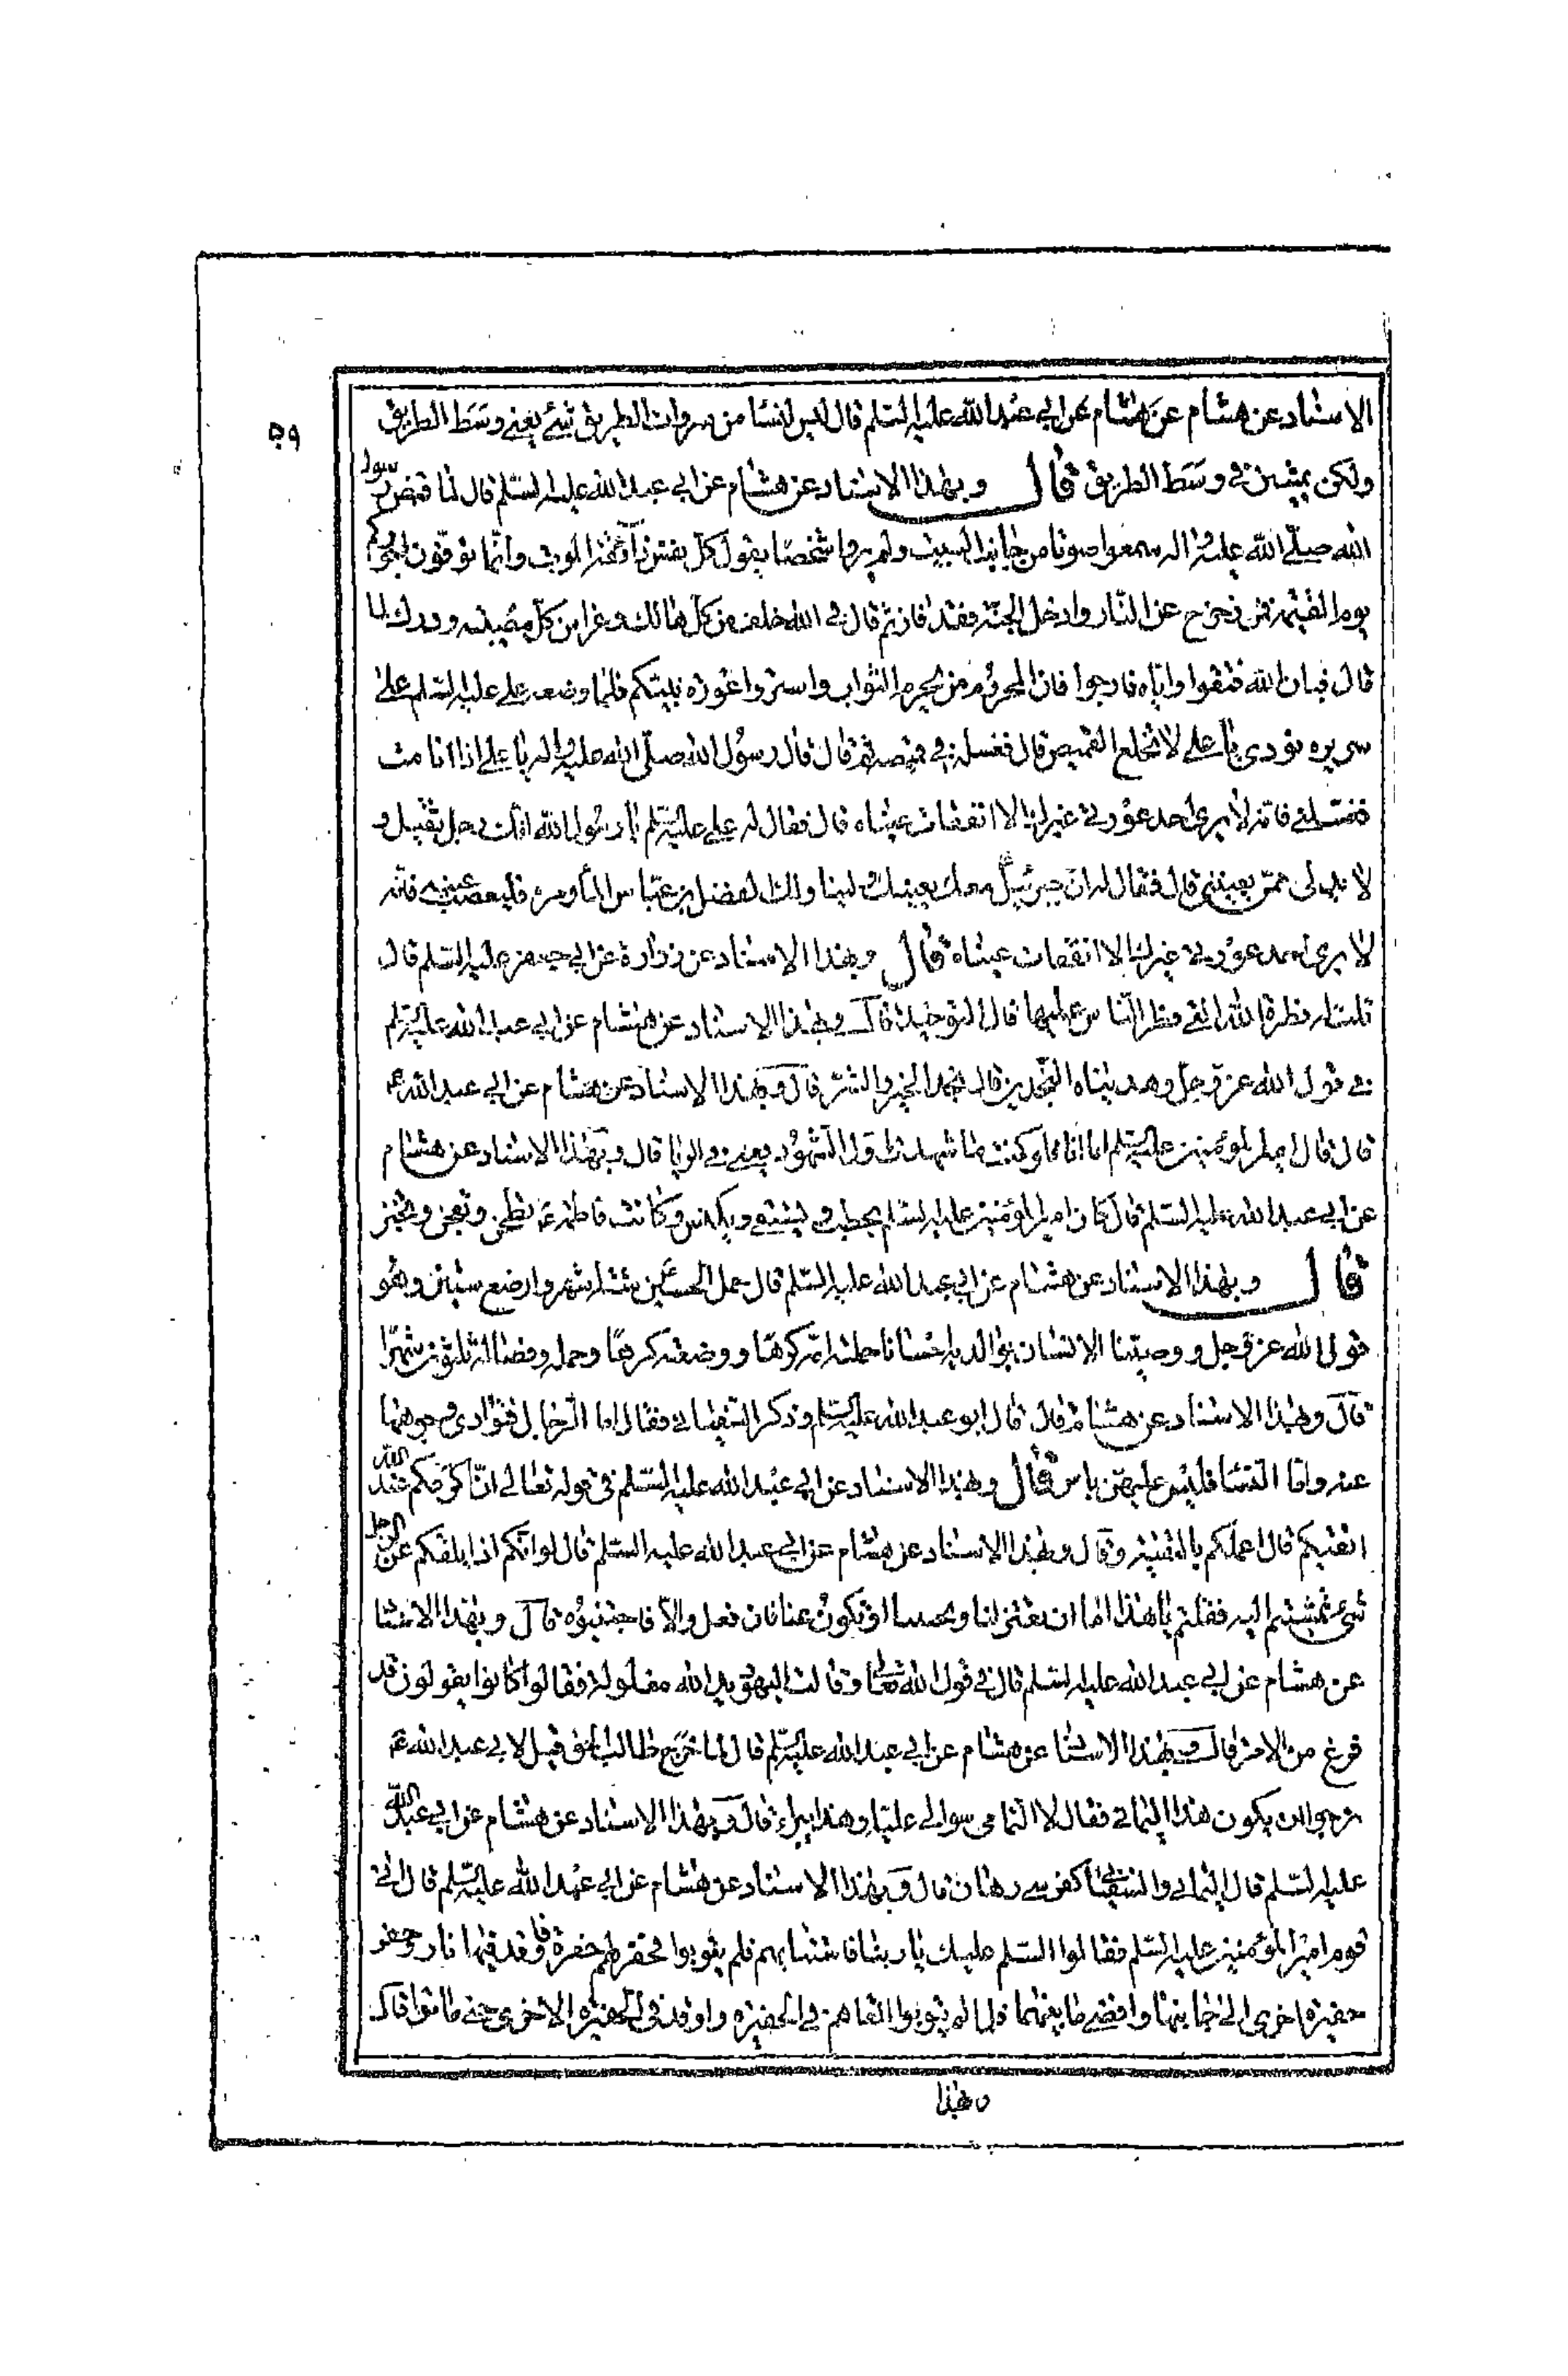 الاسناد عن هشام عن هشام عن ابي عبدالله عليه السلم قال ليس للنسا من سروات الطريق شئ يعني وسط الطريق
٥٩
ولكن يمشين في وسط الطريق قال وبهذا الاسناد عن هشام عن ابي عبدالله عليه السلم قال لما قبض رسول
الله صلى الله عليه واله سمعوا صوتا من جانب البيت ولم يروا شخصا يقول كل نفس ذائقة الموت وانما توفون اجوركم
يوم القيمة فمن زحزح عن النار وادخل الجنة فقد فاز ثم قال في الله خلف من كل هالك وعزا من كل مصيبة ودرك لما
فات فبالله فثقوا واياه فارجوا فان المحروم من يحرم الثواب واستروا عورة نبيكم فلما وضعه علي عليه السلم على
سريره نودي يا علي لا تخلع القميص قال فغسله في قميصه ثم قال قال رسول الله صلى الله عليه واله يا علي اذا انا مت
فغسلني فانه لا يرى احد عورتي غيرك الا انفقات عيناه قال فقال له علي عليه السلم يا رسول الله انك رجل ثقيل و
لا بد لي ممن يعينني قال فقال له ان جبرئيل معك يعينك وليناولك الفضل بن عباس الماء ومره فليعصب عينيه فانه
لا يرى احد عورتي غيرك الا انفقات عيناه قال وبهذا الاسناد عن زرارة عن ابي جعفر عليه السلم قال
قلت له فطرة الله التي فطر الناس عليها قال التوحيد قال وبهذا الاسناد عن هشام عن ابي عبدالله عليه السلم
في قول الله عز وجل وهديناه النجدين قال نجد الخير والشر قال وبهذا الاسناد عن هشام عن ابي عبدالله ع
قال قال امير المؤمنين عليه السلم اما انا فلو كنت ما شهدت اول الشهود يعني في الزنا قال وبهذا الاسناد عن هشام
عن ابي عبدالله عليه السلم قال كان امير المؤمنين عليه السلم يحطب ويستقي ويكنس وكانت فاطمة ع تطحن وتعجن وتخبز
قال وبهذا الاسناد عن هشام عن ابي عبدالله عليه السلم قال حمل الحسين ستة اشهر وارضع سنتين وهو
قول الله عز وجل ووصينا الانسان بوالديه احسانا حملته امه كرها ووضعته كرها وحمله وفصاله ثلثون شهرا
قال وبهذا الاسناد عن هشام قال قال ابو عبدالله عليه السلم وذكر السفياني فقال اما الرجال فتواري وجوهها
عنه واما النسا فليس عليهن باس قال وبهذا الاسناد عن ابي عبدالله عليه السلم في قوله تعالى ان اكرمكم عند الله
اتقيكم قال اعملكم بالتقية وقال وبهذا الاسناد عن هشام عن ابي عبدالله عليه السلم قال لو انكم اذا بلغكم عن الرجل
شئ تمشيتم اليه فقلتم يا هذا اما ان تعتزلنا او تكون عنا فان فعل والا فاجتنبوه قال وبهذا الاسنا
عن هشام عن ابي عبدالله عليه السلم قال في قول الله تعالى وقالت اليهود يد الله مغلولة فقالوا كانوا يقولون قد
فرغ من الامر قال وبهذا الاسنا عن هشام عن ابي عبدالله عليه السلم قال لما خرج طالب الحق قيل لابي عبدالله ع
نرجوا ان يكون هذا اليماني فقال لا اليماني يتوالى عليا وهذا يبرا قال وبهذا الاسناد عن هشام عن ابي عبدالله
عليه السلم قال اليماني والسفياني كفرسي رهان قال وبهذا الاسناد عن هشام عن ابي عبدالله عليه السلم قال اتى
قوم امير المؤمنين عليه السلم فقالوا السلم عليك يا ربنا فاستتابهم فلم يتوبوا فحفر لهم حفرة واوقد فيها نار وحفر
حفيرة اخرى الى جانبها وافضى ما بينهما فلما لم يتوبوا القاهم في الحفيرة واوقد في الحفيرة الاخرى حتى ماتوا قال
وبهذا